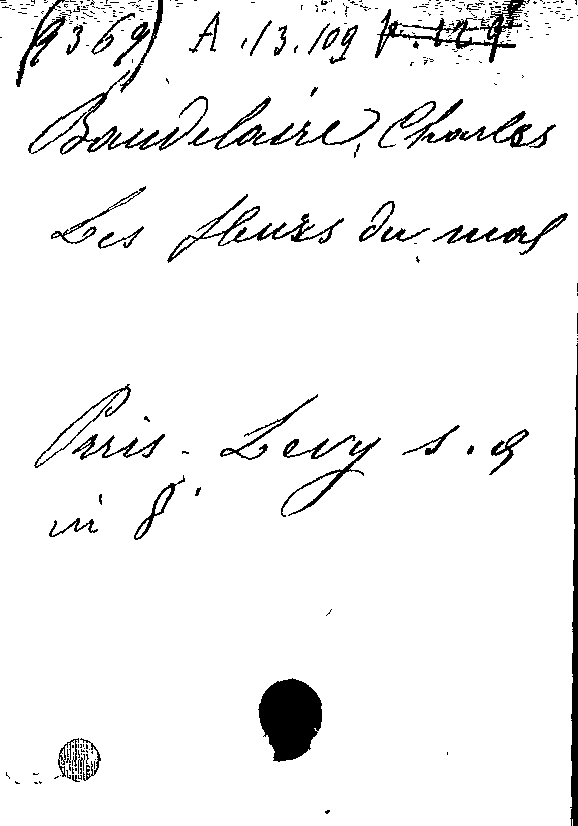 (9369) A.13.109 p. 129
Baudelaire, Charles
Les fleurs du mal
Paris - Levy s.a
in 8°